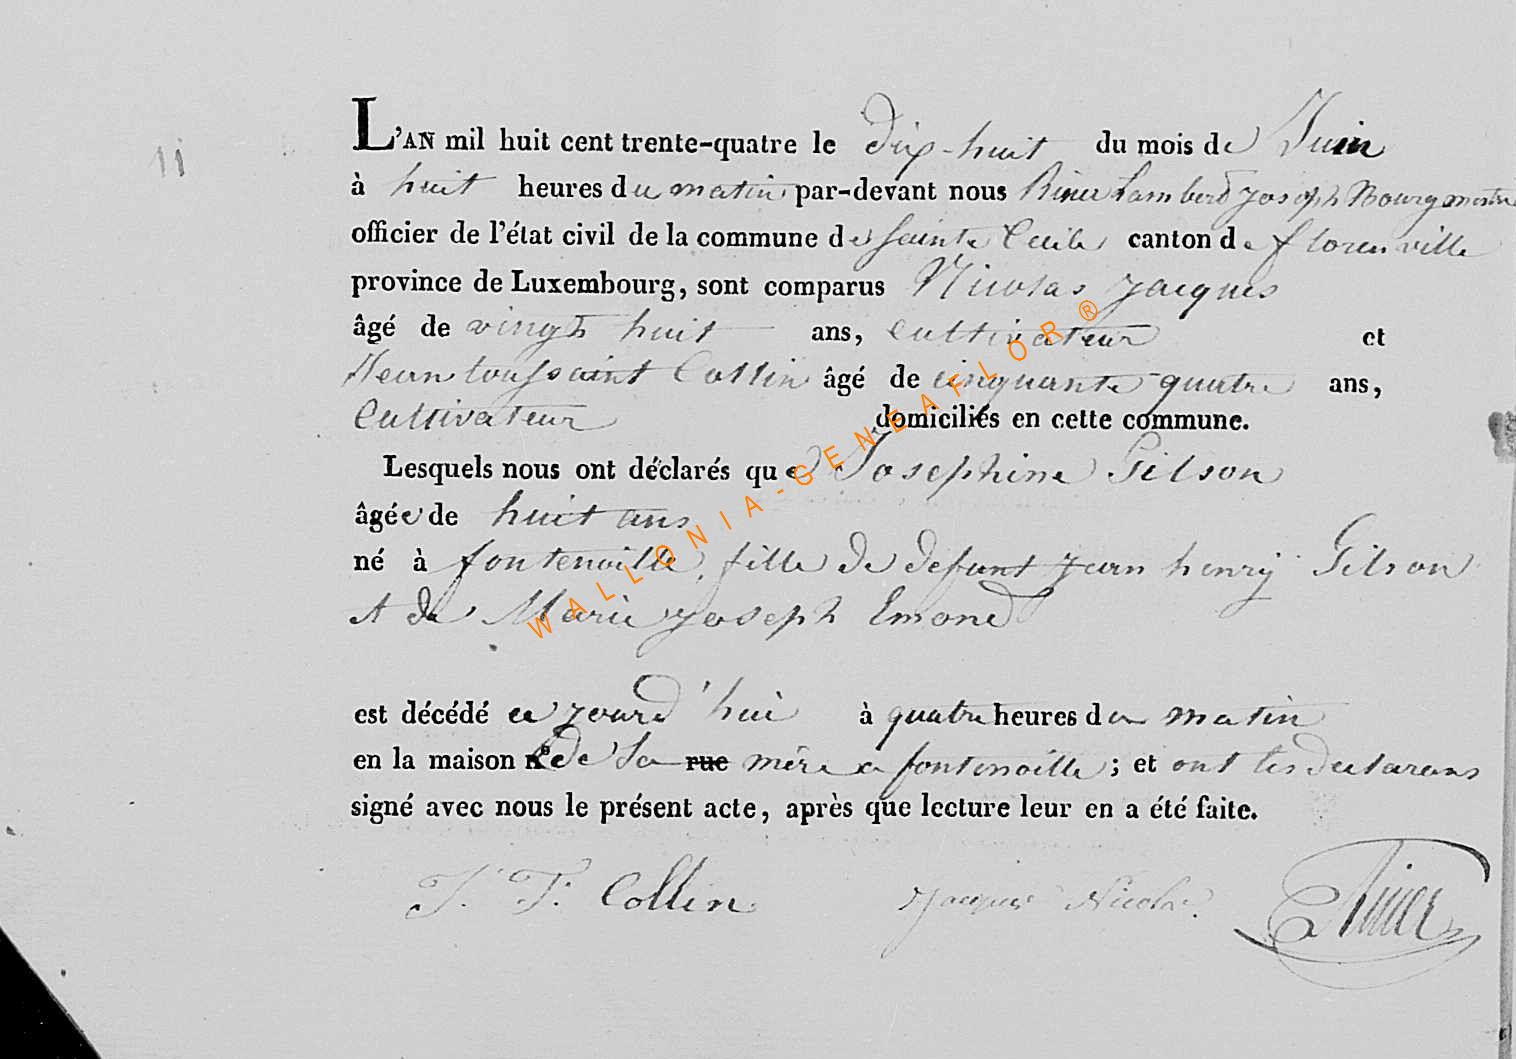 11
L'AN mil huit cent trente-quatre le dix-huit du mois de Juin
à huit heures du matin par-devant nous Lamberd Joseph Bourgmestre
officier de l'état civil de la commune de Sainte Cecile canton de florenville
province de Luxembourg, sont comparus Nicolas Jacques
âgé de vingt huit ans, Cultivateur et
Jean toussaint Collin âgé de cinquante-quatre ans,
Cultivateur domiciliés en cette commune.
Lesquels nous ont déclarés que Josephine Gilson
âgée de huit ans
né à fontenoille, fille de defunt Jean henry Gilson
et de Marie Joseph Emond
est décédé ce jourd'hui à quatre heures du matin
en la maison de sa rue mère a fontenoille ; et ont les declarans
signé avec nous le présent acte, après que lecture leur en a été faite.
J. T. Collin Jacques Nicolas
WALLONIA-GENEAFLOR®